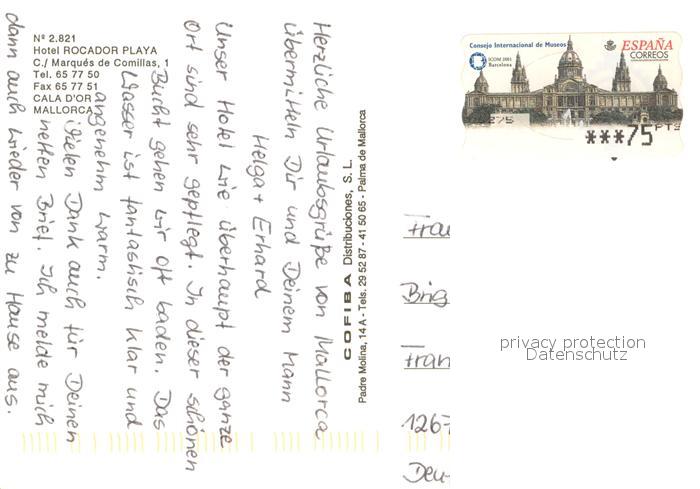 Nº 2.821
Hotel ROCADOR PLAYA
C./ Marqués de Comillas, 1
Tel. 65 77 50
Fax 65 77 51
CALA D'OR
MALLORCA
Herzliche Urlaubsgrüße von Mallorca
übermitteln Dir und Deinem Mann
Helga + Erhard
Unser Hotel wie überhaupt der ganze
Ort sind sehr gepflegt. In dieser schönen
Bucht gehen wir oft baden. Das
Wasser ist fantastisch klar und
angenehm warm.
Vielen Dank auch für Deinen
netten Brief. Ich melde mich
dann auch wieder von zu Hause aus.
COFIBA Distribuciones, S. L.
Padre Molina, 14 A - Tels. 29 52 87 - 41 50 65 - Palma de Mallorca
Consejo Internacional de Museos
ICOM 2001
Barcelona
ESPAÑA
CORREOS
***75 PTS
Frau
Brig
Fran
1267
Deu
privacy protection
Datenschutz